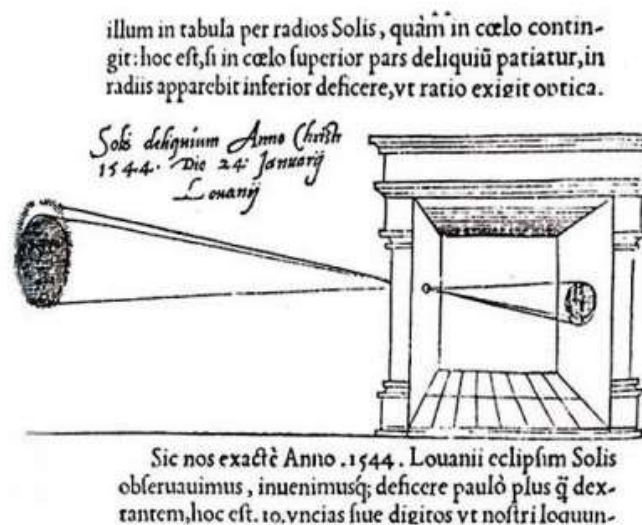 illum in tabula per radios Solis, quàm in cœlo contin-
git: hoc eſt, ſi in cœlo ſuperior pars deliquiū patiatur, in
radiis apparebit inferior deficere, vt ratio exigit optica.
Solis deliquium Anno Christi
1544. Die 24. Januarij
Louanij
Sic nos exactè Anno .1544. Louanii eclipſim Solis
obſeruauimus, inuenimusq; deficere paulò plus q̃ dex-
tantem, hoc eſt. 10. vncias ſiue digitos vt noſtri loquun-